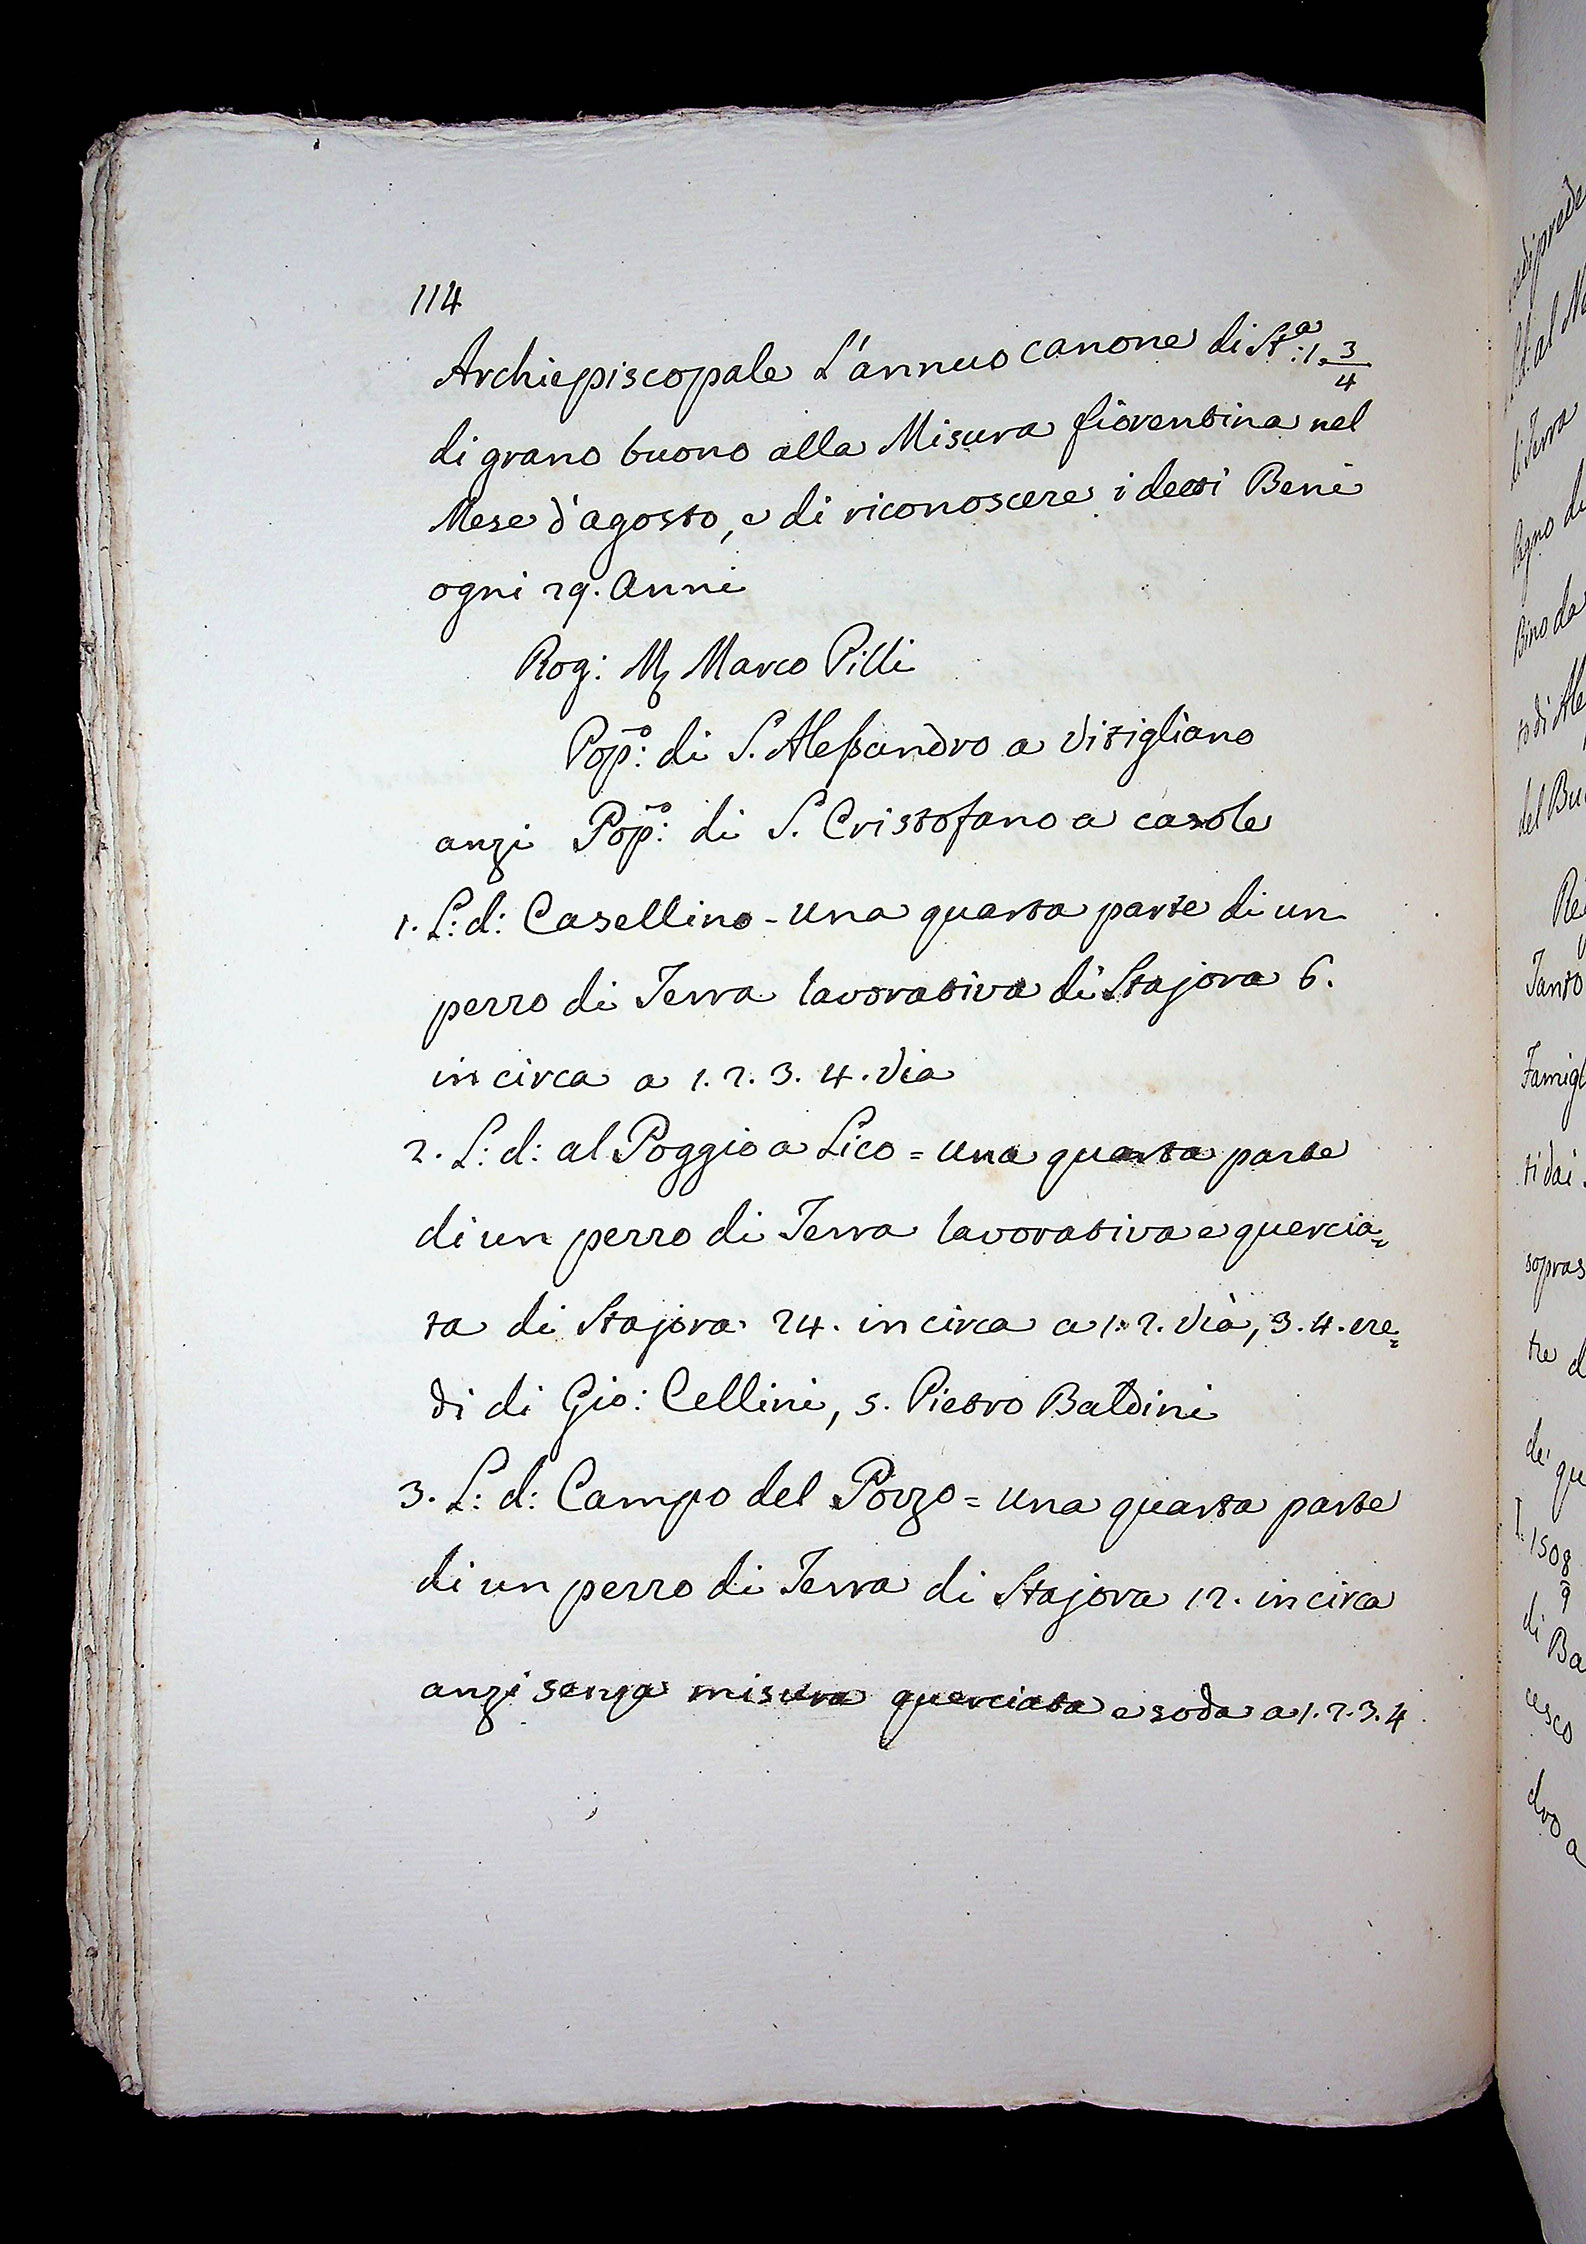 114
Archiepiscopale L'annuo canone di Stᵃ: 1. 3/4
di grano buono alla Misura fiorentina nel
Mese d'agosto, e di riconoscere i detti Beni
ogni 29. Anni
Rog: Mz Marco Pilli
Popᵒ: di S. Alessandro a Vitigliano
anzi Popᵒ: di S. Cristofano a casole
1. L: d: Casellino - una quarta parte di un
pezzo di Terra lavorativa di Stajora 6.
in circa a 1. 2. 3. 4. Via
2. L: d: al Poggio a Lico = una quarta parte
di un pezzo di Terra lavorativa e quercia=
ta di Stajora 24. in circa a 1. 2. Via, 3. 4. ere=
di di Gio: Cellini, 5. Pietro Baldini
3. L: d: Campo del Pozzo = una quarta parte
di un pezzo di Terra di Stajora 12. in circa
anzi senza misura querciata e soda a 1. 2. 3. 4
di Terra
Bino da
del Bu
Tanto
Famigl
ti dai
sopras
tre d
de' qu
1508
9
di Ba
cesco